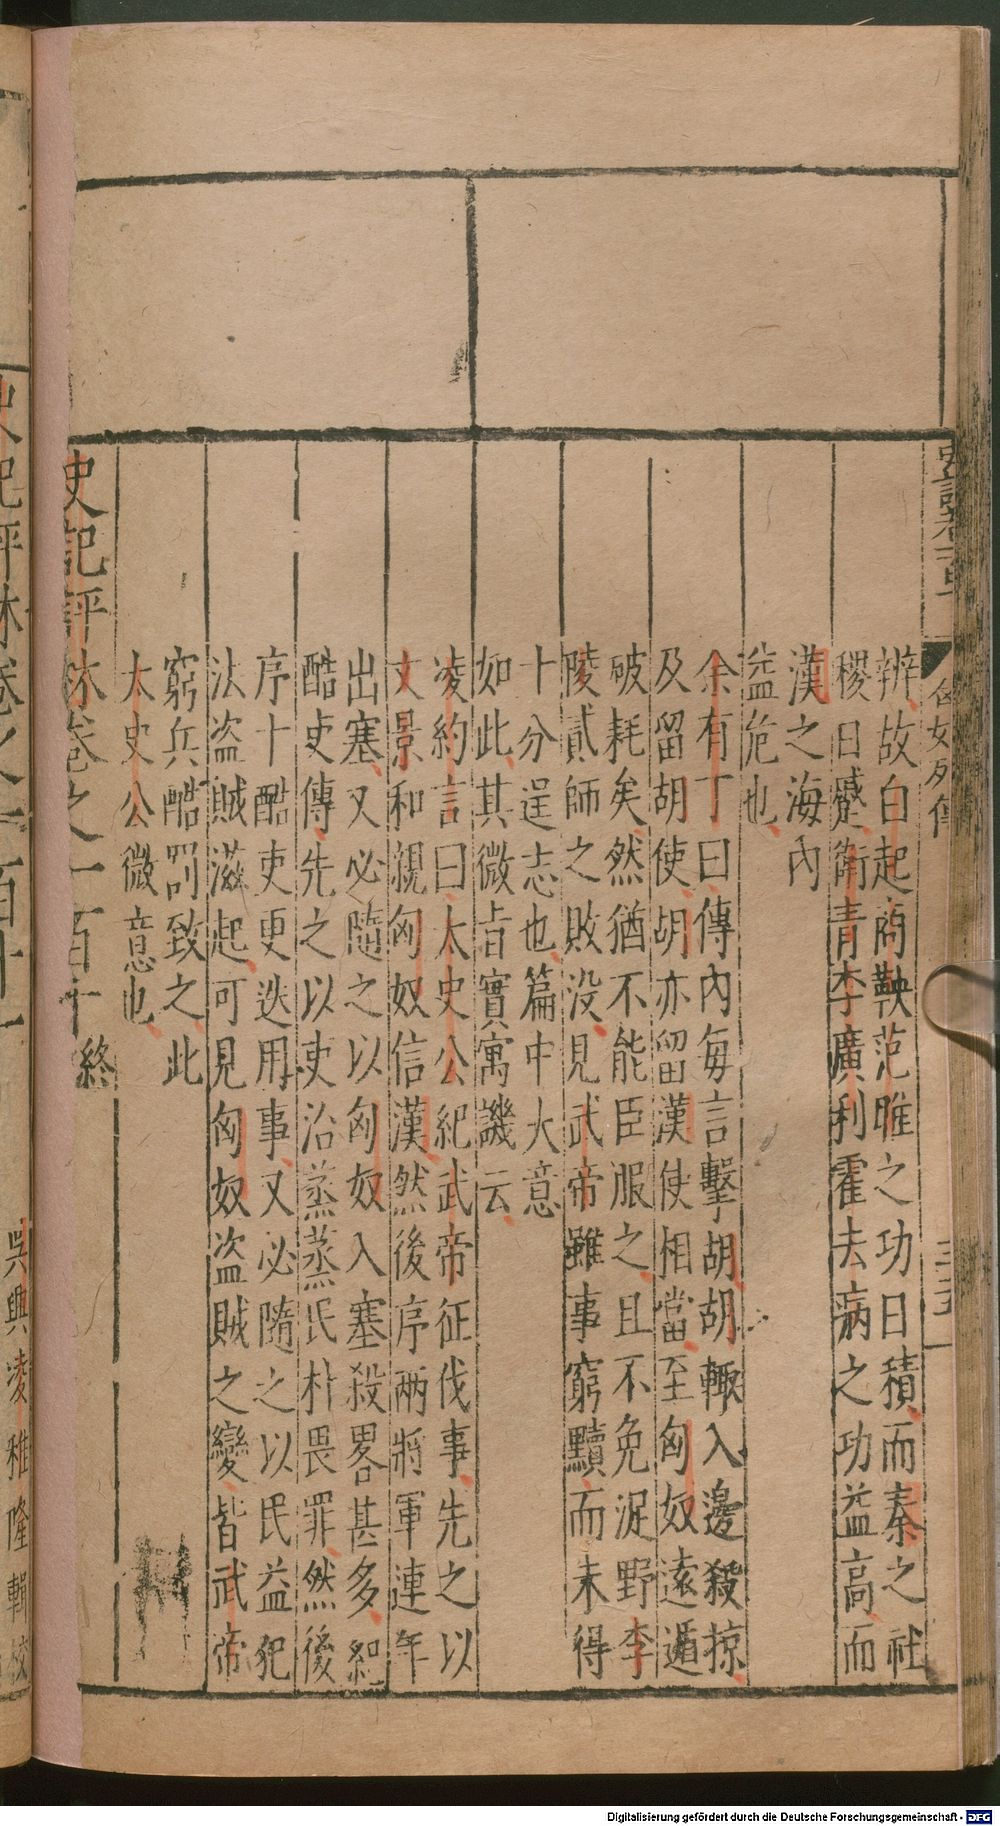 辨故白起商鞅范睢之功日積而秦之社
稷日蹙衛青李廣利霍去病之功益高而
漢之海內
益危也
余有丁曰傳內每言擊胡胡輙入邊殺掠
及留胡使胡亦留漢使相當至匈奴遠遁
破耗矣然猶不能臣服之且不免浞野李
陵貳師之敗没見武帝雖事窮黷而未得
十分逞志也篇中大意
如此其微㫖實寓譏云
凌約言曰太史公紀武帝征伐事先之以
文景和親匈奴信漢然後序兩將軍連年
出塞又必隨之以匈奴入塞殺畧甚多紀
酷吏傳先之以吏治蒸蒸民朴畏罪然後
序十酷吏更迭用事又必隨之以民益犯
法盜賊滋起可見匈奴盜賊之變皆武帝
窮兵酷罰致之此
太史公微意也
史記評林卷之一百十 終
史記評林卷之一百十一
吳興凌稚隆輯校
Digitalisierung gefördert durch die Deutsche Forschungsgemeinschaft - DFG